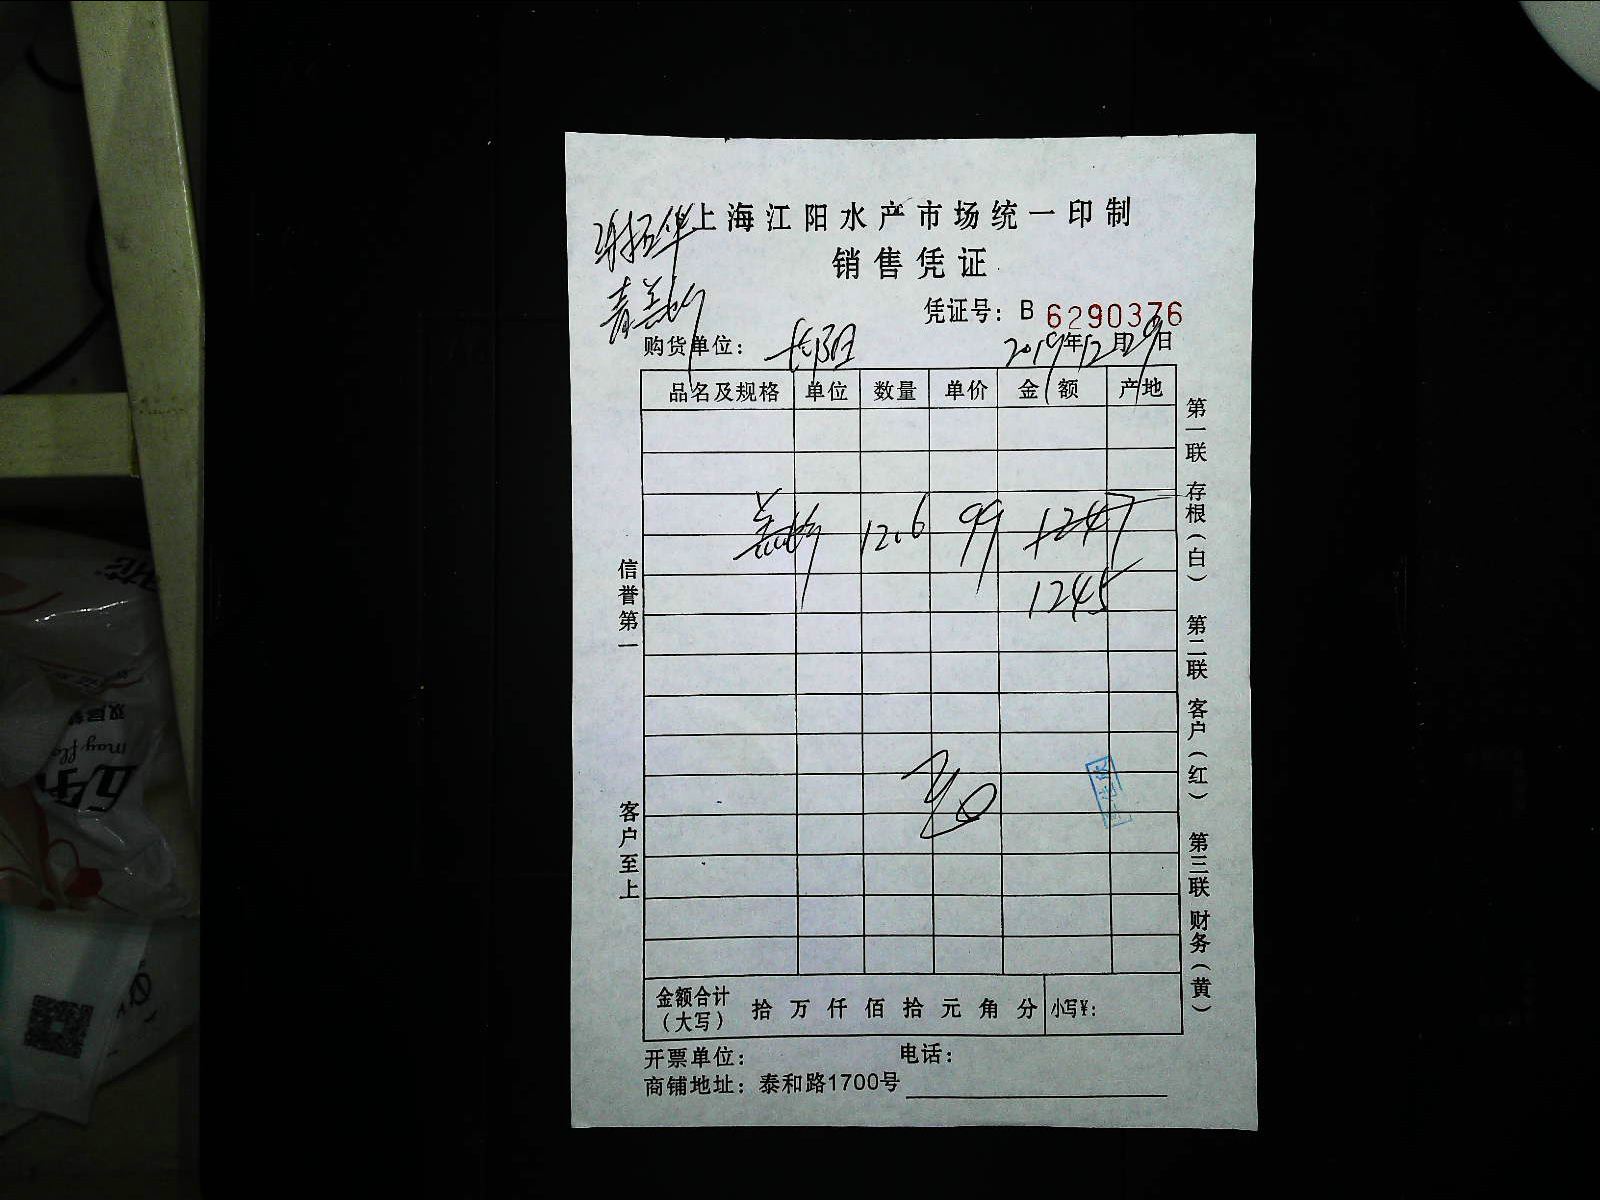 上海江阳水产市场统一印制
销售凭证
凭证号：B 6290376
购货单位： 长阳 2019年12月29日
品名及规格 单位 数量 单价 金额 产地
12.6 99 1247
1245
信誉第一
客户至上
第一联 存根（白） 第二联 客户（红） 第三联 财务（黄）
金额合计（大写） 拾 万 仟 佰 拾 元 角 分 小写¥：
开票单位： 电话：
商铺地址：泰和路1700号